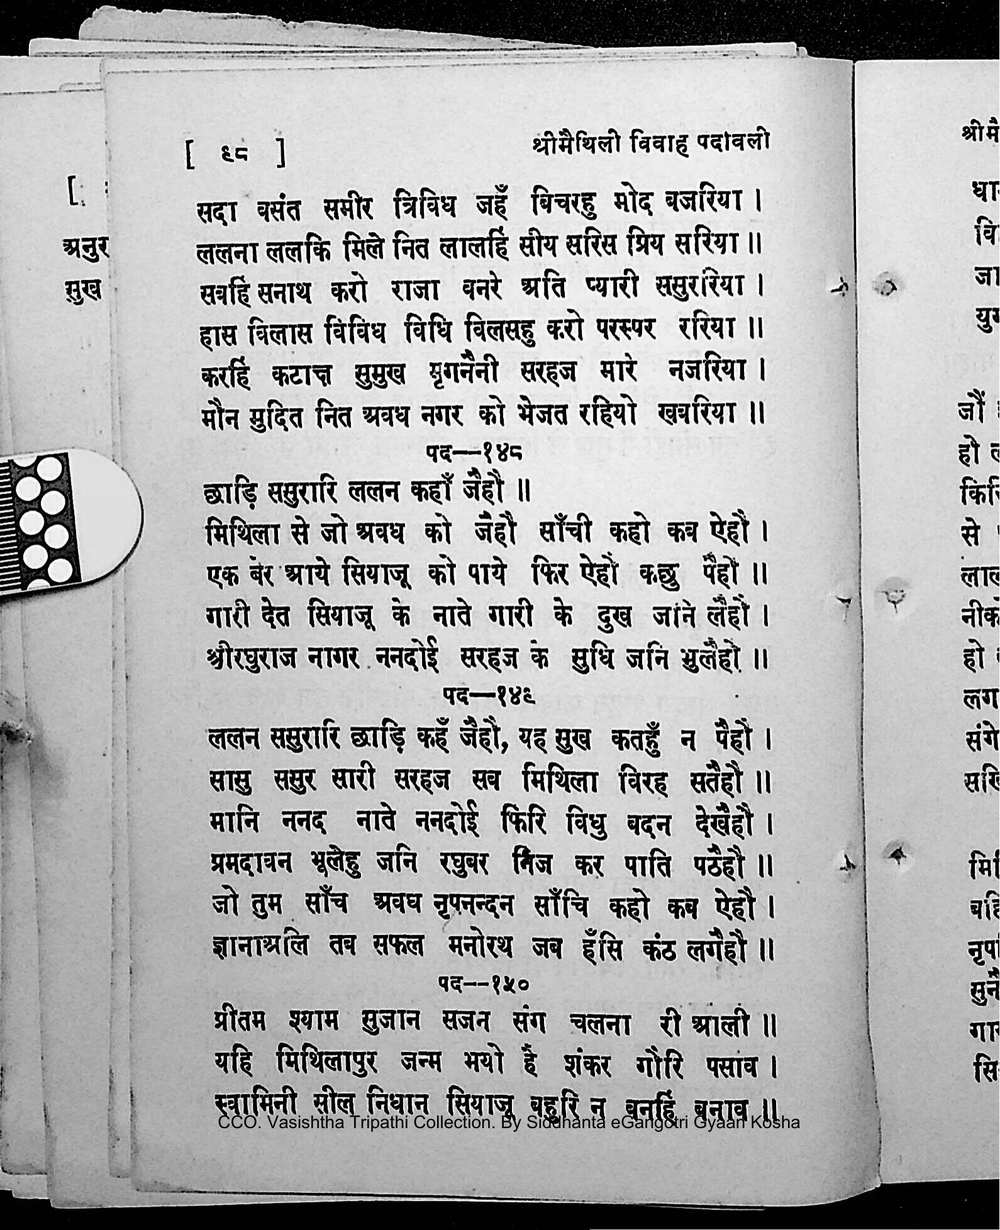 [ ९८ ] श्रीमैथिली विवाह पदावली
सदा बसंत समीर त्रिविध जहँ बिचरहु मोद बजरिया ।
ललना ललकि मिले नित लालहिं सीय सरिस प्रिय सरिया ॥
सबहिं सनाथ करो राजा बनरे अति प्यारी ससुररिया ।
हास बिलास विविध विधि विलसहु करो परस्पर ररिया ॥
करहिं कटाक्ष सुमुख मृगनैनी सरहज मारे नजरिया ।
मौन मुदित नित अवध नगर को भेजत रहियो खबरिया ॥
पद—१४८
छाड़ि ससुरारि ललन कहाँ जैहौ ॥
मिथिला से जो अवध को जैहौ साँची कहो कब ऐहौ ।
एक बेर आये सियाजू को पाये फिर ऐहौ कछु पैहौ ॥
गारी देत सियाजू के नाते गारी के दुख जनि लैहौ ।
श्रीरघुराज नागर ननदोई सरहज के सुधि जनि भुलैहौ ॥
पद—१४९
ललन ससुरारि छाड़ि कहँ जैहौ, यह सुख कतहुँ न पैहौ ।
सासु ससुर सारी सरहज सब मिथिला विरह सतैहौ ॥
मानि ननद नाते ननदोई फिरि विधु बदन देखैहौ ।
प्रमदावन भूलेहु जनि रघुबर निज कर पाति पठैहौ ॥
जो तुम साँच अवध नृपनन्दन साँचि कहो कब ऐहौ ।
ज्ञानाअलि तब सफल मनोरथ जब हँसि कंठ लगैहौ ॥
पद--१५०
प्रीतम श्याम सुजान सजन संग चलना री आली ॥
यहि मिथिलापुर जन्म भयो है शंकर गौरि पसाव ।
स्वामिनी सील निधान सियाजू बहुरि न बनहिं बनाव ॥
CCO. Vasishtha Tripathi Collection. By Siddhanta eGangotri Gyaan Kosha
[
अनुर
सुख
श्रीमै
धा
वि
जा
यु
जौं
हो ल
से
लाल
नीक
हो
लग
संगे
सखि
मि
बहि
नृप
सुनै
गा
सि